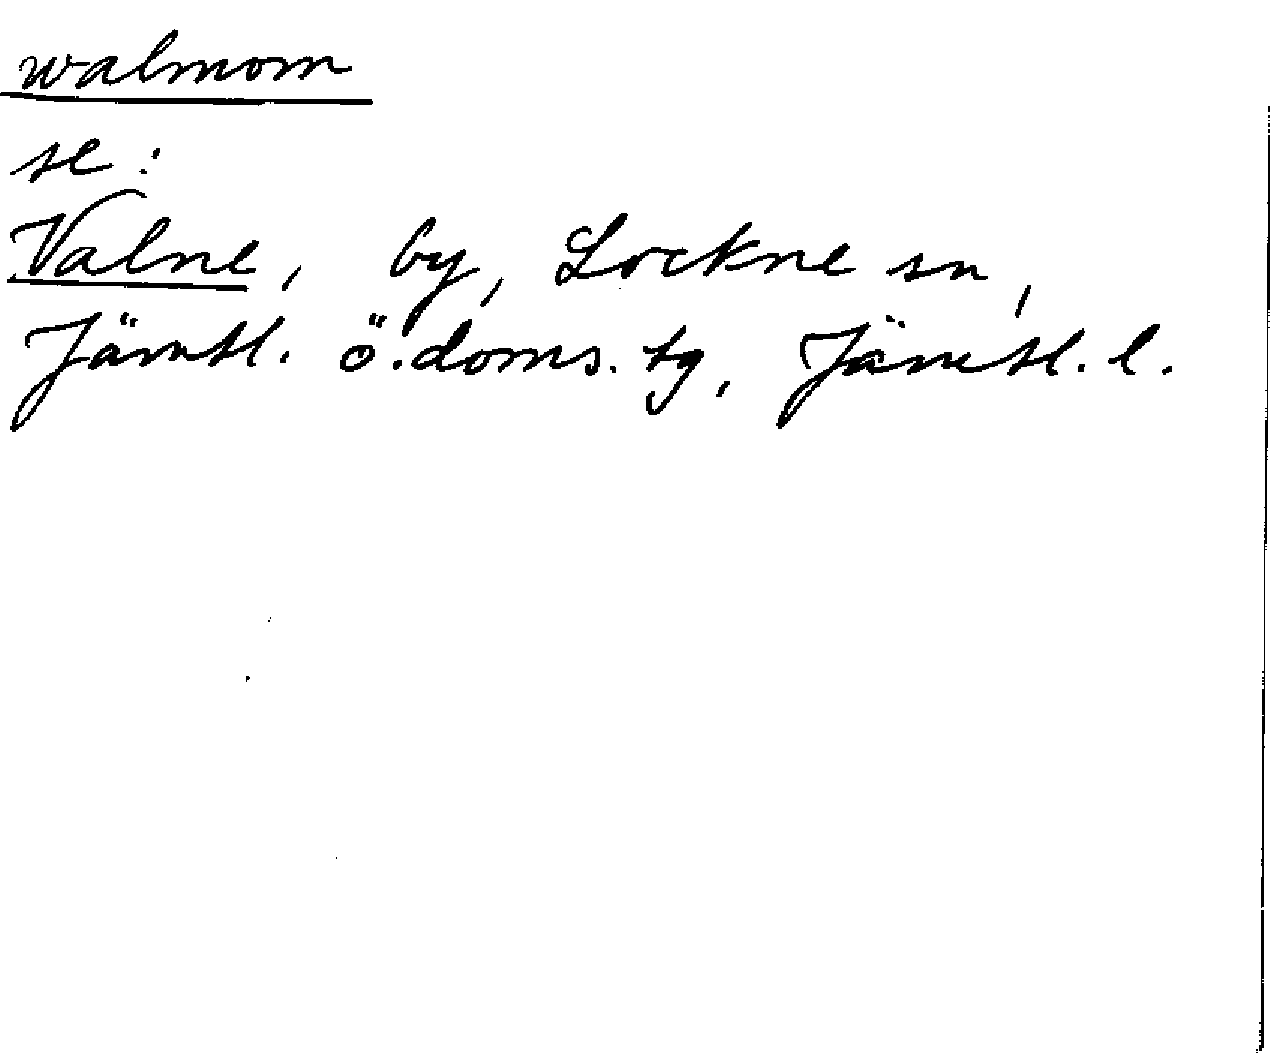 walmom
se:
Valne, by, Lockne sn,
Jämtl. ö. doms. tg, Jämtl. l.